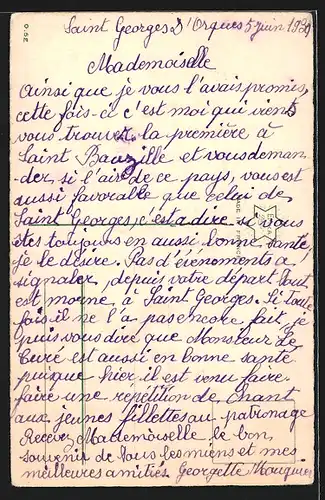 Saint Georges D'Orques 5 juin 1939
Mademoiselle
Ainsi que je vous l'avais promis,
cette fois-ci c'est moi qui viens
vous trouver la première à
Saint Bauzille et vous deman-
der si l'air de ce pays, vous est
aussi favorable que celui de
Saint Georges, c'est a dire si vous
êtes toujours en aussi bonne santé,
je le désire. Pas d'évènements a
signaler, depuis votre départ tout
est morne à Saint Georges. Si toute
fois il ne l'a pas encore fait, je
puis vous dire que Monsieur Le
Curé est aussi en bonne santé
puisque hier il est venu faire
faire une répétition de Chant
aux jeunes fillettes au patronage
Recevez Mademoiselle le bon
souvenir de tous les miens et mes
meilleures amitiés. Georgette